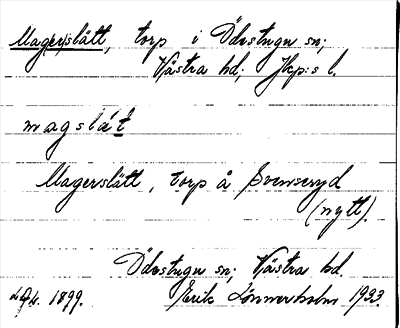 Magerslätt, torp i Ödestugu sn;
Västra hd; Jkp:s l.
magslä́t
Magerslätt, torp å Svenseryd
(nytt).
Ödestugu sn; Västra hd.
1899. Erik Lönnerholm 1933